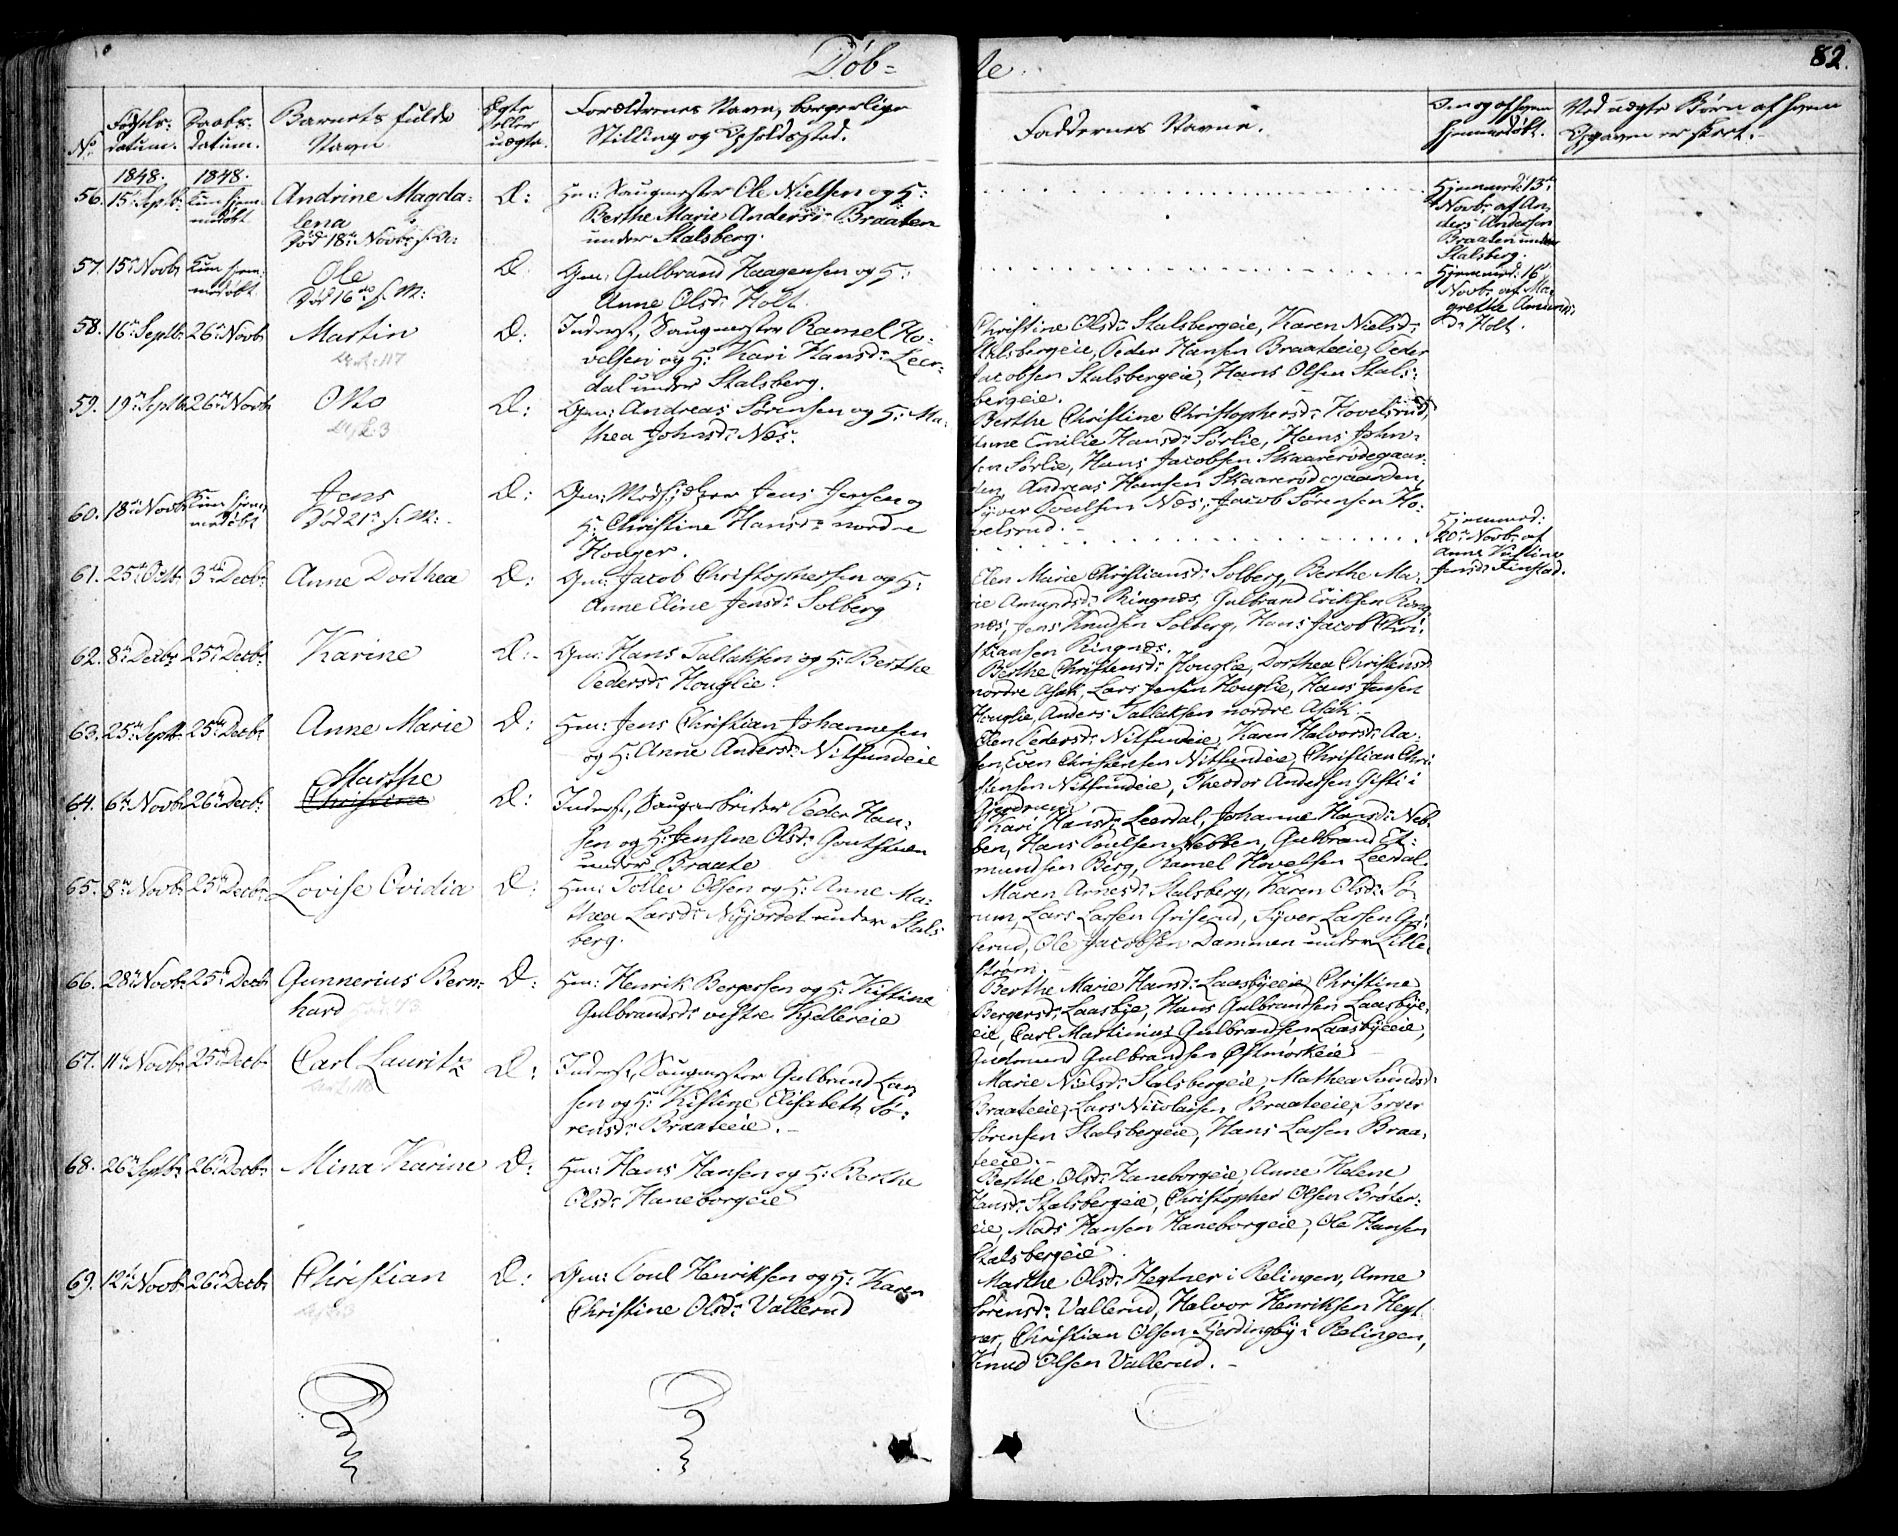 Døb=
te.
82.
No.
Fødsels-
datum.
Daabs-
datum.
Barnets fulde
Navn
Ægte
eller
uægte.
Forældrenes Navn, borgerlige
Stilling og Opholdssted.
Faddernes Navne.
Om og af hvem
hjemmedøbt.
Ved uægte Børn af hvem
Opgaven er skeet.
1848.
1848.
56. 15de Septb: Kun hjem-
medøbt
Andrine Magda-
lena
Død 18de Novbr s. A:
Æ:
Hm: Saugmester Ole Nielsen og H:
Berthe Marie Andersdr Braaten
under Stalsberg.
Hjemmed: 13de
Novbr af An-
ders Andersen
Braaten under
Stalsberg.
57. 15de Novbr Kun hjem-
medøbt
Ole
Død 16de s. M:
Æ:
Gm: Gulbrand Haagensen og H:
Anne Olsdr Holt.
Hjemmed: 16de
Novbr af Ma-
grethe Amunds-
dr Holt.
58. 16de Septb: 26de Novbr
Martin
Æ:
Inderst, Saugmester Ramel Ho-
velsen og H: Kari Hansdr Leer-
dal under Stalsberg.
Christine Olsdr Stalsbergeie, Karen Nielsdr
Stalsbergeie, Peder Hansen Braateeie, Peder
Jacobsen Stalsbergeie, Hans Olsen Stals-
bergeie.
59. 19de Septb: 26de Novbr
Otto
Æ:
Gm: Andreas Sørensen og H: Ma-
thea Johnsdr Nes.
Berthe Christine Christophersdr Hovelsrud,
Anne Emilie Hansdr Sørlie, Hans John-
sen Sørlie, Hans Jacobsen Skaarerødegaar-
den, Andreas Hansen Skaarerødegaarden,
Syver Poulsen Nes, Jacob Sørensen Ho-
velsrud.
60. 18de Novbr Kun hjem-
medøbt
Jens
Død 21de s. M:
Æ:
Gm: Medhjelper Jens Jensen og
H: Christine Hansdr nordre
Houger.
Hjemmed:
20de Novbr af
Anne Kirstine
Jensdr Finstad.
61. 25de Octb: 3die Decbr
Anne Dorthea
Æ:
Gm: Jacob Christophersen og H:
Anne Eline Jensdr Solberg
Elen Marie Christiansdr Solberg, Berthe Ma-
rie Amundsdr Ringnæs, Gulbrand Eriksen Ring-
næs, Jens Knudsen Solberg, Hans Jacob Chri-
stiansen Ringnæs.
62. 8de Decbr 25de Decbr
Karine
Æ:
Gm: Hans Tallaksen og H: Berthe
Pedersdr Houglie.
Berthe Christensdr Houglie, Dorthea Christensdr
nordre Asak, Lars Jensen Houglie, Hans Jensen
Houglie, Anders Tallaksen nordre Asak.
63. 25de Septb: 25de Decbr
Anne Marie
Æ:
Hm: Jens Christian Johannesen
og H: Anne Andersdr Nitsundeie
Elen Pedersdr Nitsundeie, Karen Halvorsdr Aa-
sen, Even Christensen Nitsundeie, Christian Chri-
stensen Nitsundeie, Theodor Andersen Gisti i
Gjerdrum
64. 6te Novbr 26de Decbr
Marthe
Christine
Æ:
Inderst, Saugarbeider Peder Han-
sen og H: Jensine Olsdr Goutstuen
under Braate
Kari Hansdr Leerdal, Johanne Hansdr Neb-
ben, Hans Poulsen Nebben, Gulbrand Et-
mundsen Berg, Ramel Hovelsen Leerdal.
65. 8de Novbr 25de Decbr
Lovise Ovidia
Æ:
Hm: Tollev Olsen og H: Anne Ma-
thea Larsdr Nyjordet under Stals-
berg.
Maren Arnesdr Stalsberg, Karen Olsdr Sø-
rum, Lars Larsen Griserud, Syver Larsen Gri-
serud, Ole Jacobsen Dammen under Lille-
strøm.
66. 28de Novbr 25de Decbr
Gunnerius Bern-
hard
Æ:
Hm: Henrik Bergersen og H: Kistine
Gulbrandsdr vestre Kjellereie
Berthe Marie Hansdr Laasbyeeie, Christine
Bergersdr Laasbye, Hans Gulbrandsen Laasbye-
eie, Carl Martinius Gulbrandsen Laasbyeeie,
Gudmund Gulbrandsen Østmorkeie
67. 11te Novbr 25de Decbr
Carl Lauritz
Æ:
Inderst, Saugmester Gulbrand Lar-
sen og H: Kistine Elisabeth Sø-
rensdr Braateeie.
Marie Nielsdr Stalsbergeie, Mathea Svendsdr
Braateeie, Lars Nicolaisen Braateeie, Torger
Sørensen Stalsbergeie, Hans Larsen Braa-
teeie.
68. 26de Septb: 26de Decbr
Mina Karine
Æ:
Hm: Hans Hansen og H: Berthe
Olsdr Haneborgeie
Berthe Olsdr Haneborgeie, Anne Helene
Hansdr Stalsbergeie, Christopher Olsen Brøter-
eie, Mads Hansen Haneborgeie, Ole Hansen
Stalsbergeie.
69. 12te Novbr 26de Decbr
Christian
Æ:
Gm: Poul Henriksen og H: Karen
Christine Olsdr Vallerud
Marthe Olsdr Hegtner i Relingen, Anne
Sørensdr Vallerud, Halvor Henriksen Hegt-
ner, Christian Olsen Fjerdingby i Relingen,
Knud Olsen Vallerud.